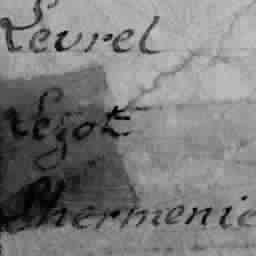 Levrel
Legot
Lhermenie